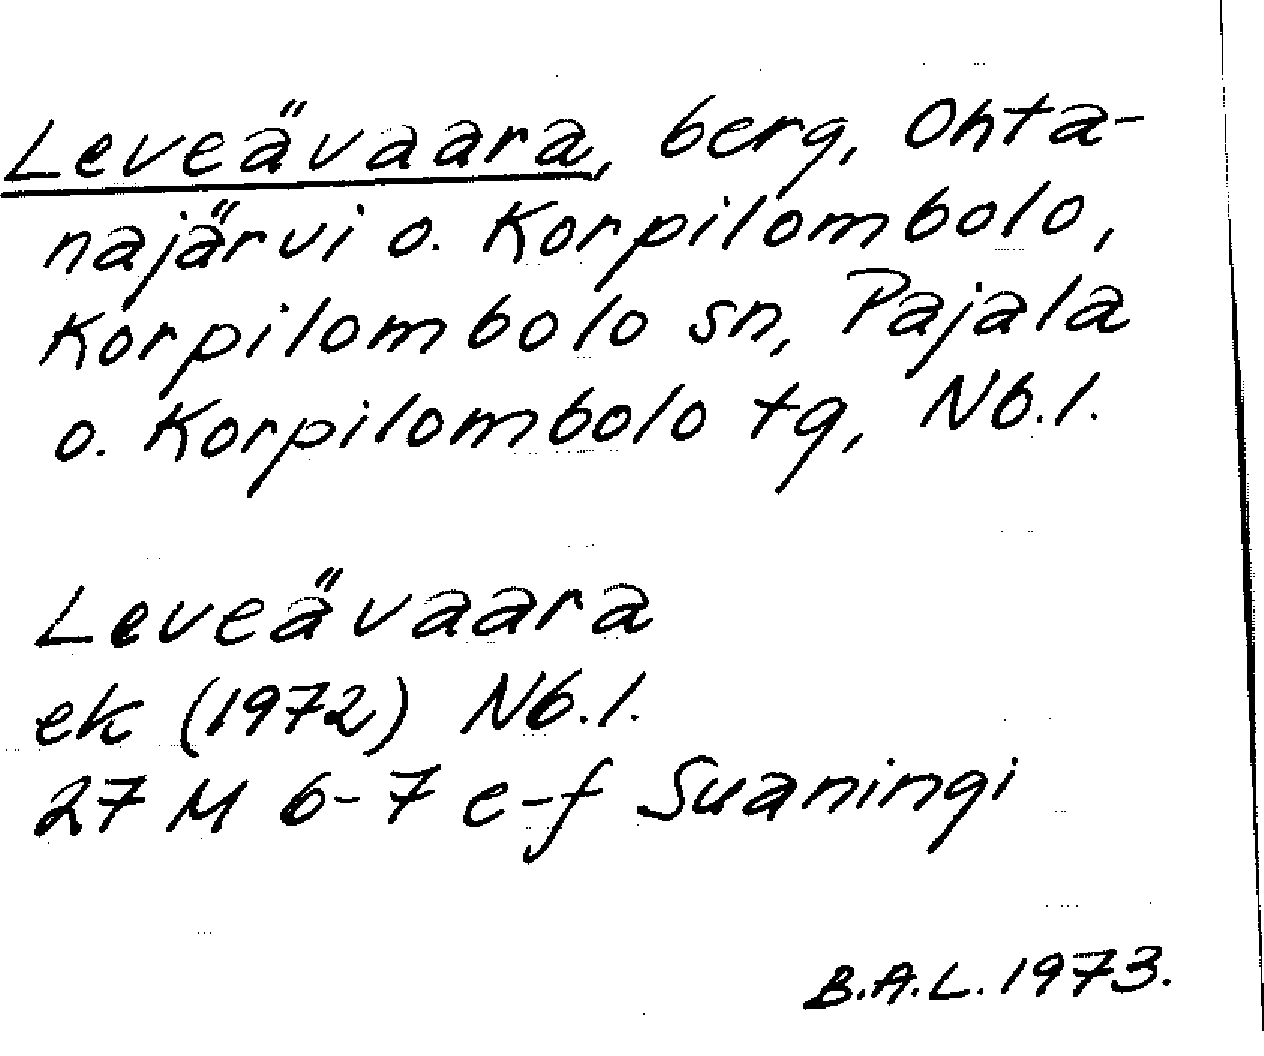 Leveävaara, berg, Ohta-
najärvi o. Korpilombolo,
Korpilombolo sn, Pajala
o. Korpilombolo tg, Nb.l.
Leveävaara
ek (1972) Nb.l.
27 M 6-7 e-f Suaningi
B.A.L. 1973.